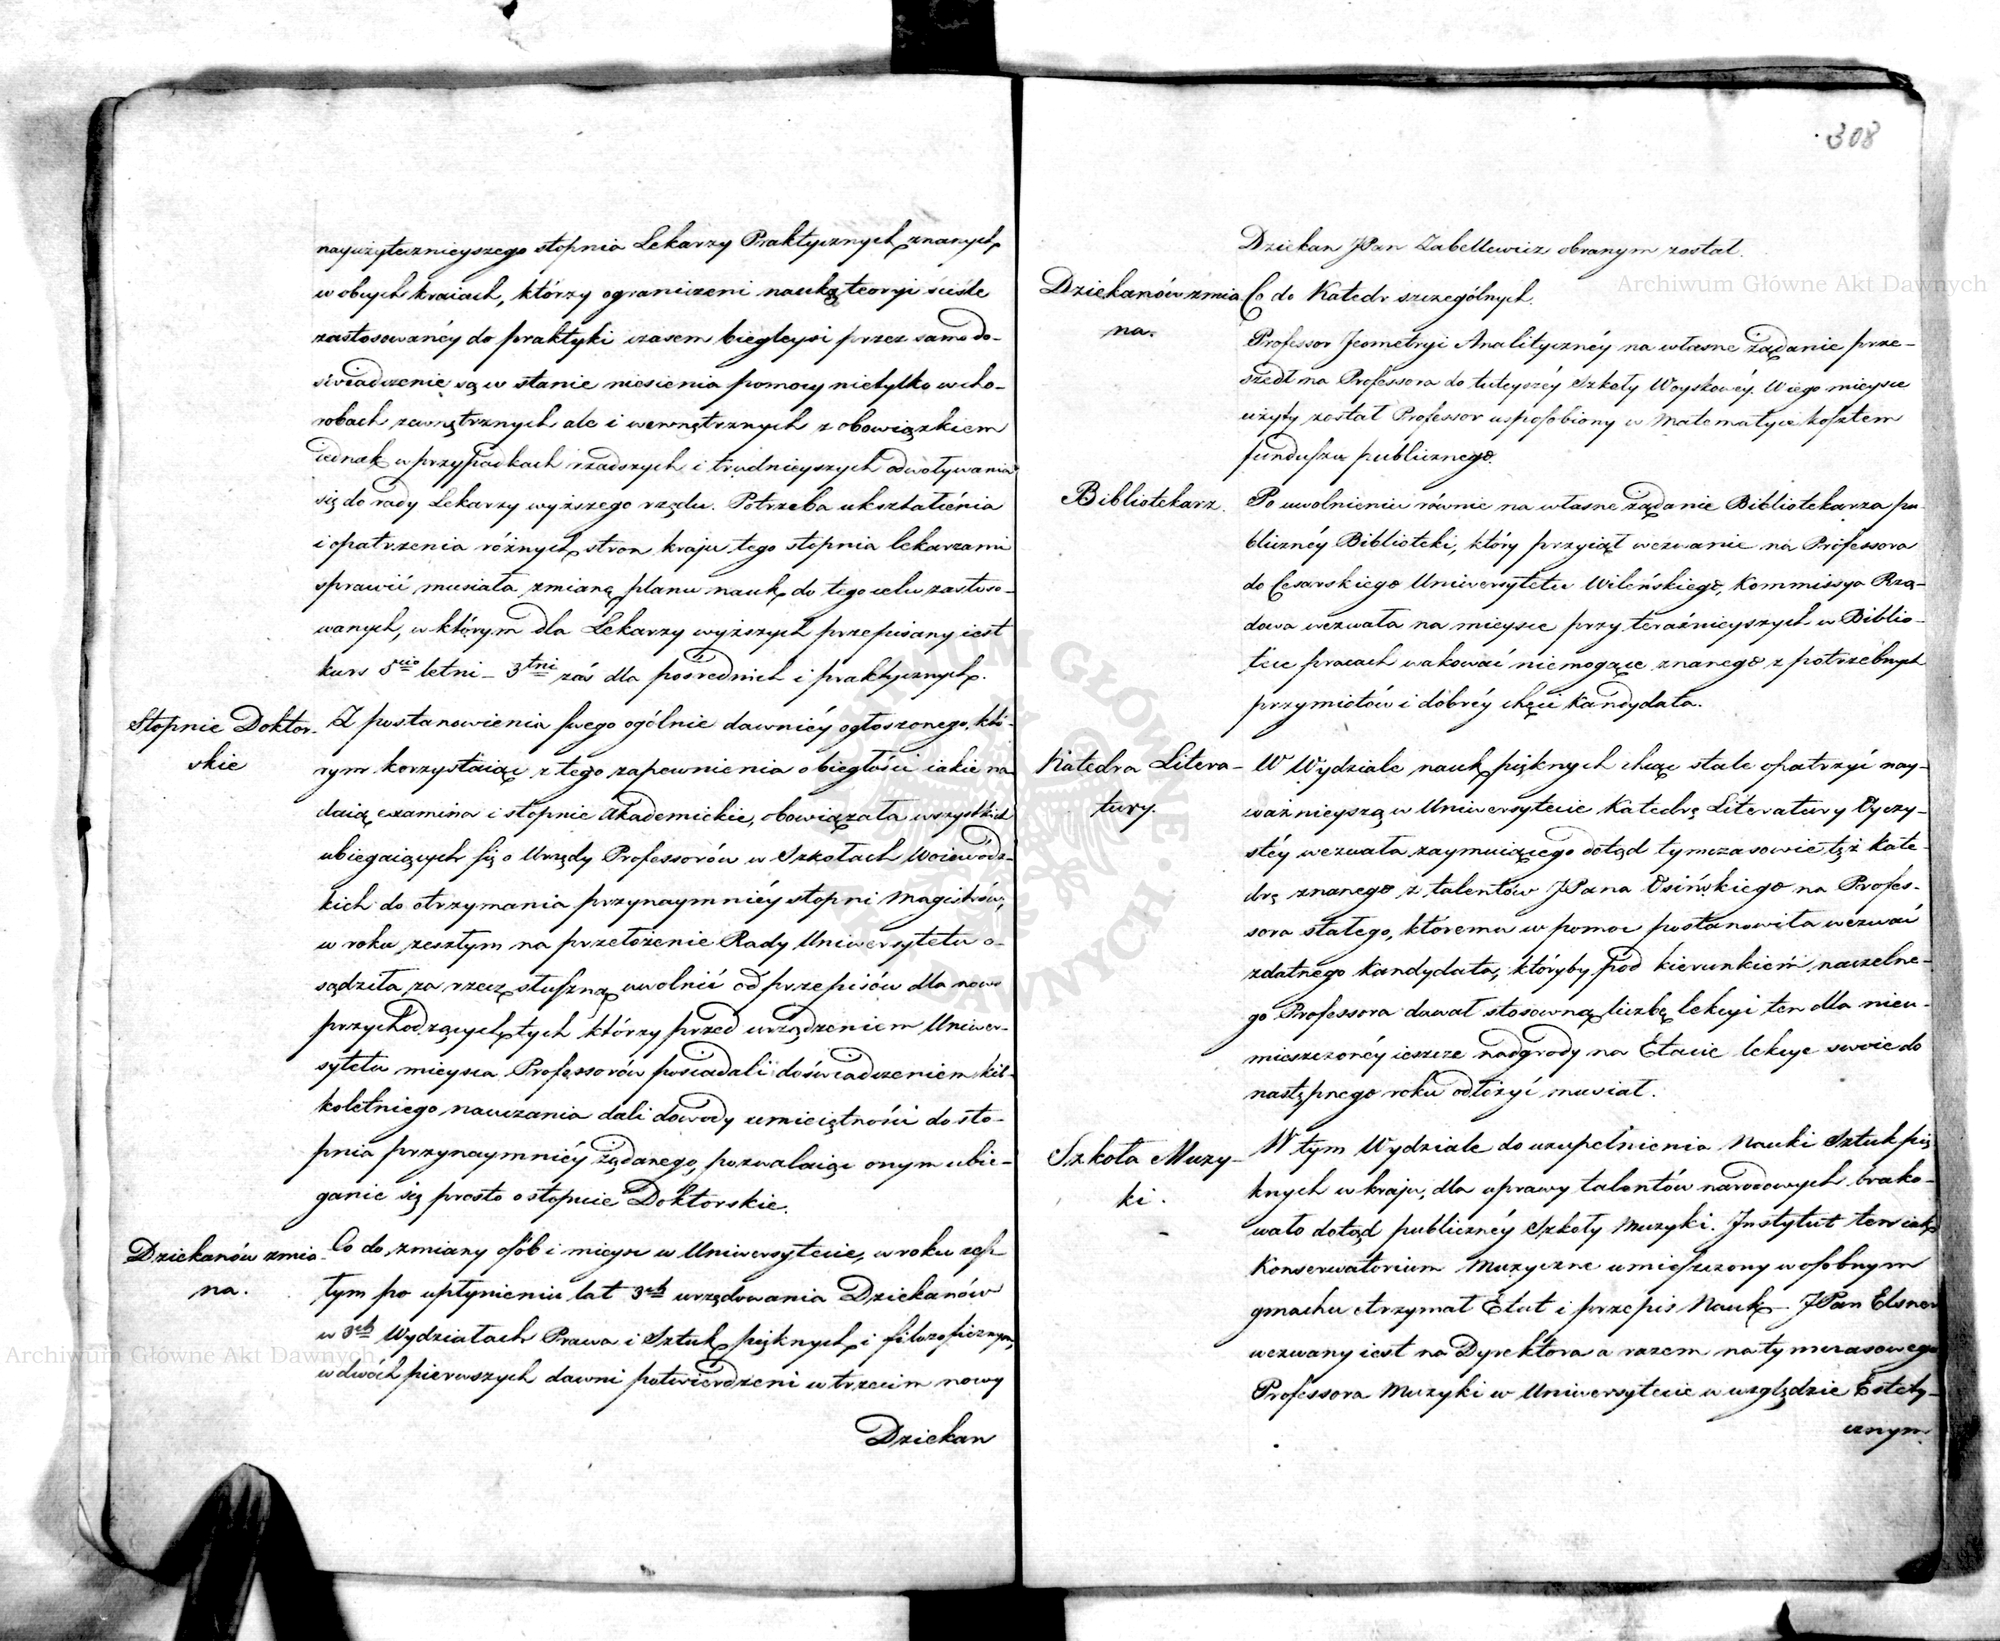 nayużytecznieyszego stopnia Lekarzy Praktycznych znanych
w obcych kraiach, którzy ograniczeni nauką teoryi ściśle
zastosowanéy do praktyki czasem biegleysi przez samo do-
świadczenie są w stanie niesienia pomocy nietylko w cho-
robach zewnętrznych ale i wewnętrznych z obowiązkiem
iednak w przypadkach rzadszych i trudnieyszych odwoływania
się do rady Lekarzy wyższego rzędu. Potrzeba ukształcenia
i opatrzenia różnych stron kraju tego stopnia lekarzami
sprawić musiała zmianę planu nauk do tego celu zastoso-
wanych, w którym dla Lekarzy wyższych przepisany iest
kurs 5cio letni – 3tni zaś dla pośrednich i praktycznych.
Stopnie Doktor-
skie
Z postanowienia swego ogólnie dawniéy ogłoszonego, któ-
rym korzystaiąc z tego zapewnienia o biegłości iakie na-
daią examina i stopnie Akademickie, obowiązała wszystkich
ubiegaiących się o Urzędy Professorów w Szkołach Woiewódz-
kich do otrzymania przynaymniéy stopni Magistrów,
w roku zeszłym na przełożenie Rady Uniwersytetu o-
sądziła za rzecz słuszną uwolnić od przepisów dla nowo
przychodzących tych którzy przed urządzeniem Uniwer-
sytetu mieysca Professorów posiadali doświadczeniem kil-
koletniego nauczania dali dowody umieiętności do sto-
pnia przynaymniéy żądanego, pozwalaiąc onym ubie-
ganie się prosto o stopnie Doktorskie.
Dziekanów zmia-
na.
Co do zmiany osób i mieysc w Uniwersytecie, w roku zesz-
tym po upłynieniu lat 3ch urzędowania Dziekanów
w 3ch Wydziałach Prawa i Sztuk pięknych i filozoficznym,
w dwóch pierwszych dawni potwierdzeni w trzecim nowy
Dziekan
308
Dziekan JPan Zabellewicz obranym został.
Dziekanów zmia
na.
Co do Katedr szczególnych.
Professor Jeometryi Analitycznéy na własne żądanie prze-
szedł na Professora do tuteyszéy Szkoły Woyskowéy. W iego mieysce
użyty został Professor usposobiony w Matematyce kosztem
funduszu publicznego.
Bibliotekarz.
Po uwolnieniu równie na własne żądanie Bibliotekarza pu-
blicznéy Biblioteki, który przyiął wezwanie na Professora
do Cesarskiego Uniwersytetu Wileńskiego, Kommissya Rzą-
dowa wezwała na mieysce przy teraźnieyszych w Biblio-
tece pracach wakować niemogące znanego z potrzebnych
przymiotów i dobréy chęci Kandydata.
Katedra Litera-
tury.
W Wydziale nauk pięknych chcąc stale opatrzyć nay-
ważnieyszą w Uniwersytecie Katedrę Literatury Oyczy-
stéy wezwała zaymuiącego dotąd tymczasowie tęż Kate-
drę znanego z talentów JPana Osińskiego na Profes-
sora stałego, któremu w pomoc postanowiła wezwać
zdatnego Kandydata, któryby pod kierunkiem naczelne-
go Professora dawał stosowną liczbę lekcyi ten dla nieu-
mieszczonéy ieszcze nadgrody na Etacie lekcye swoie do
następnego roku odłożyć musiał.
Szkoła Muzy-
ki.
W tym Wydziale do uzupełnienia Nauki Sztuk pię-
knych w kraju, dla uprawy talentów narodowych brako-
wało dotąd publicznéy Szkoły Muzyki. Instytut ten iako
Konserwatorium Muzyczne umieszczony w osobnym
gmachu otrzymał Etat i przepis Nauk – JPan Elsner
wezwany iest na Dyrektora a razem na tymczasowego
Professora Muzyki w Uniwersytecie w względzie Estety-
cznym.
Archiwum Główne Akt Dawnych
Archiwum Główne Akt Dawnych
ARCHIWUM GŁÓWNE AKT DAWNYCH